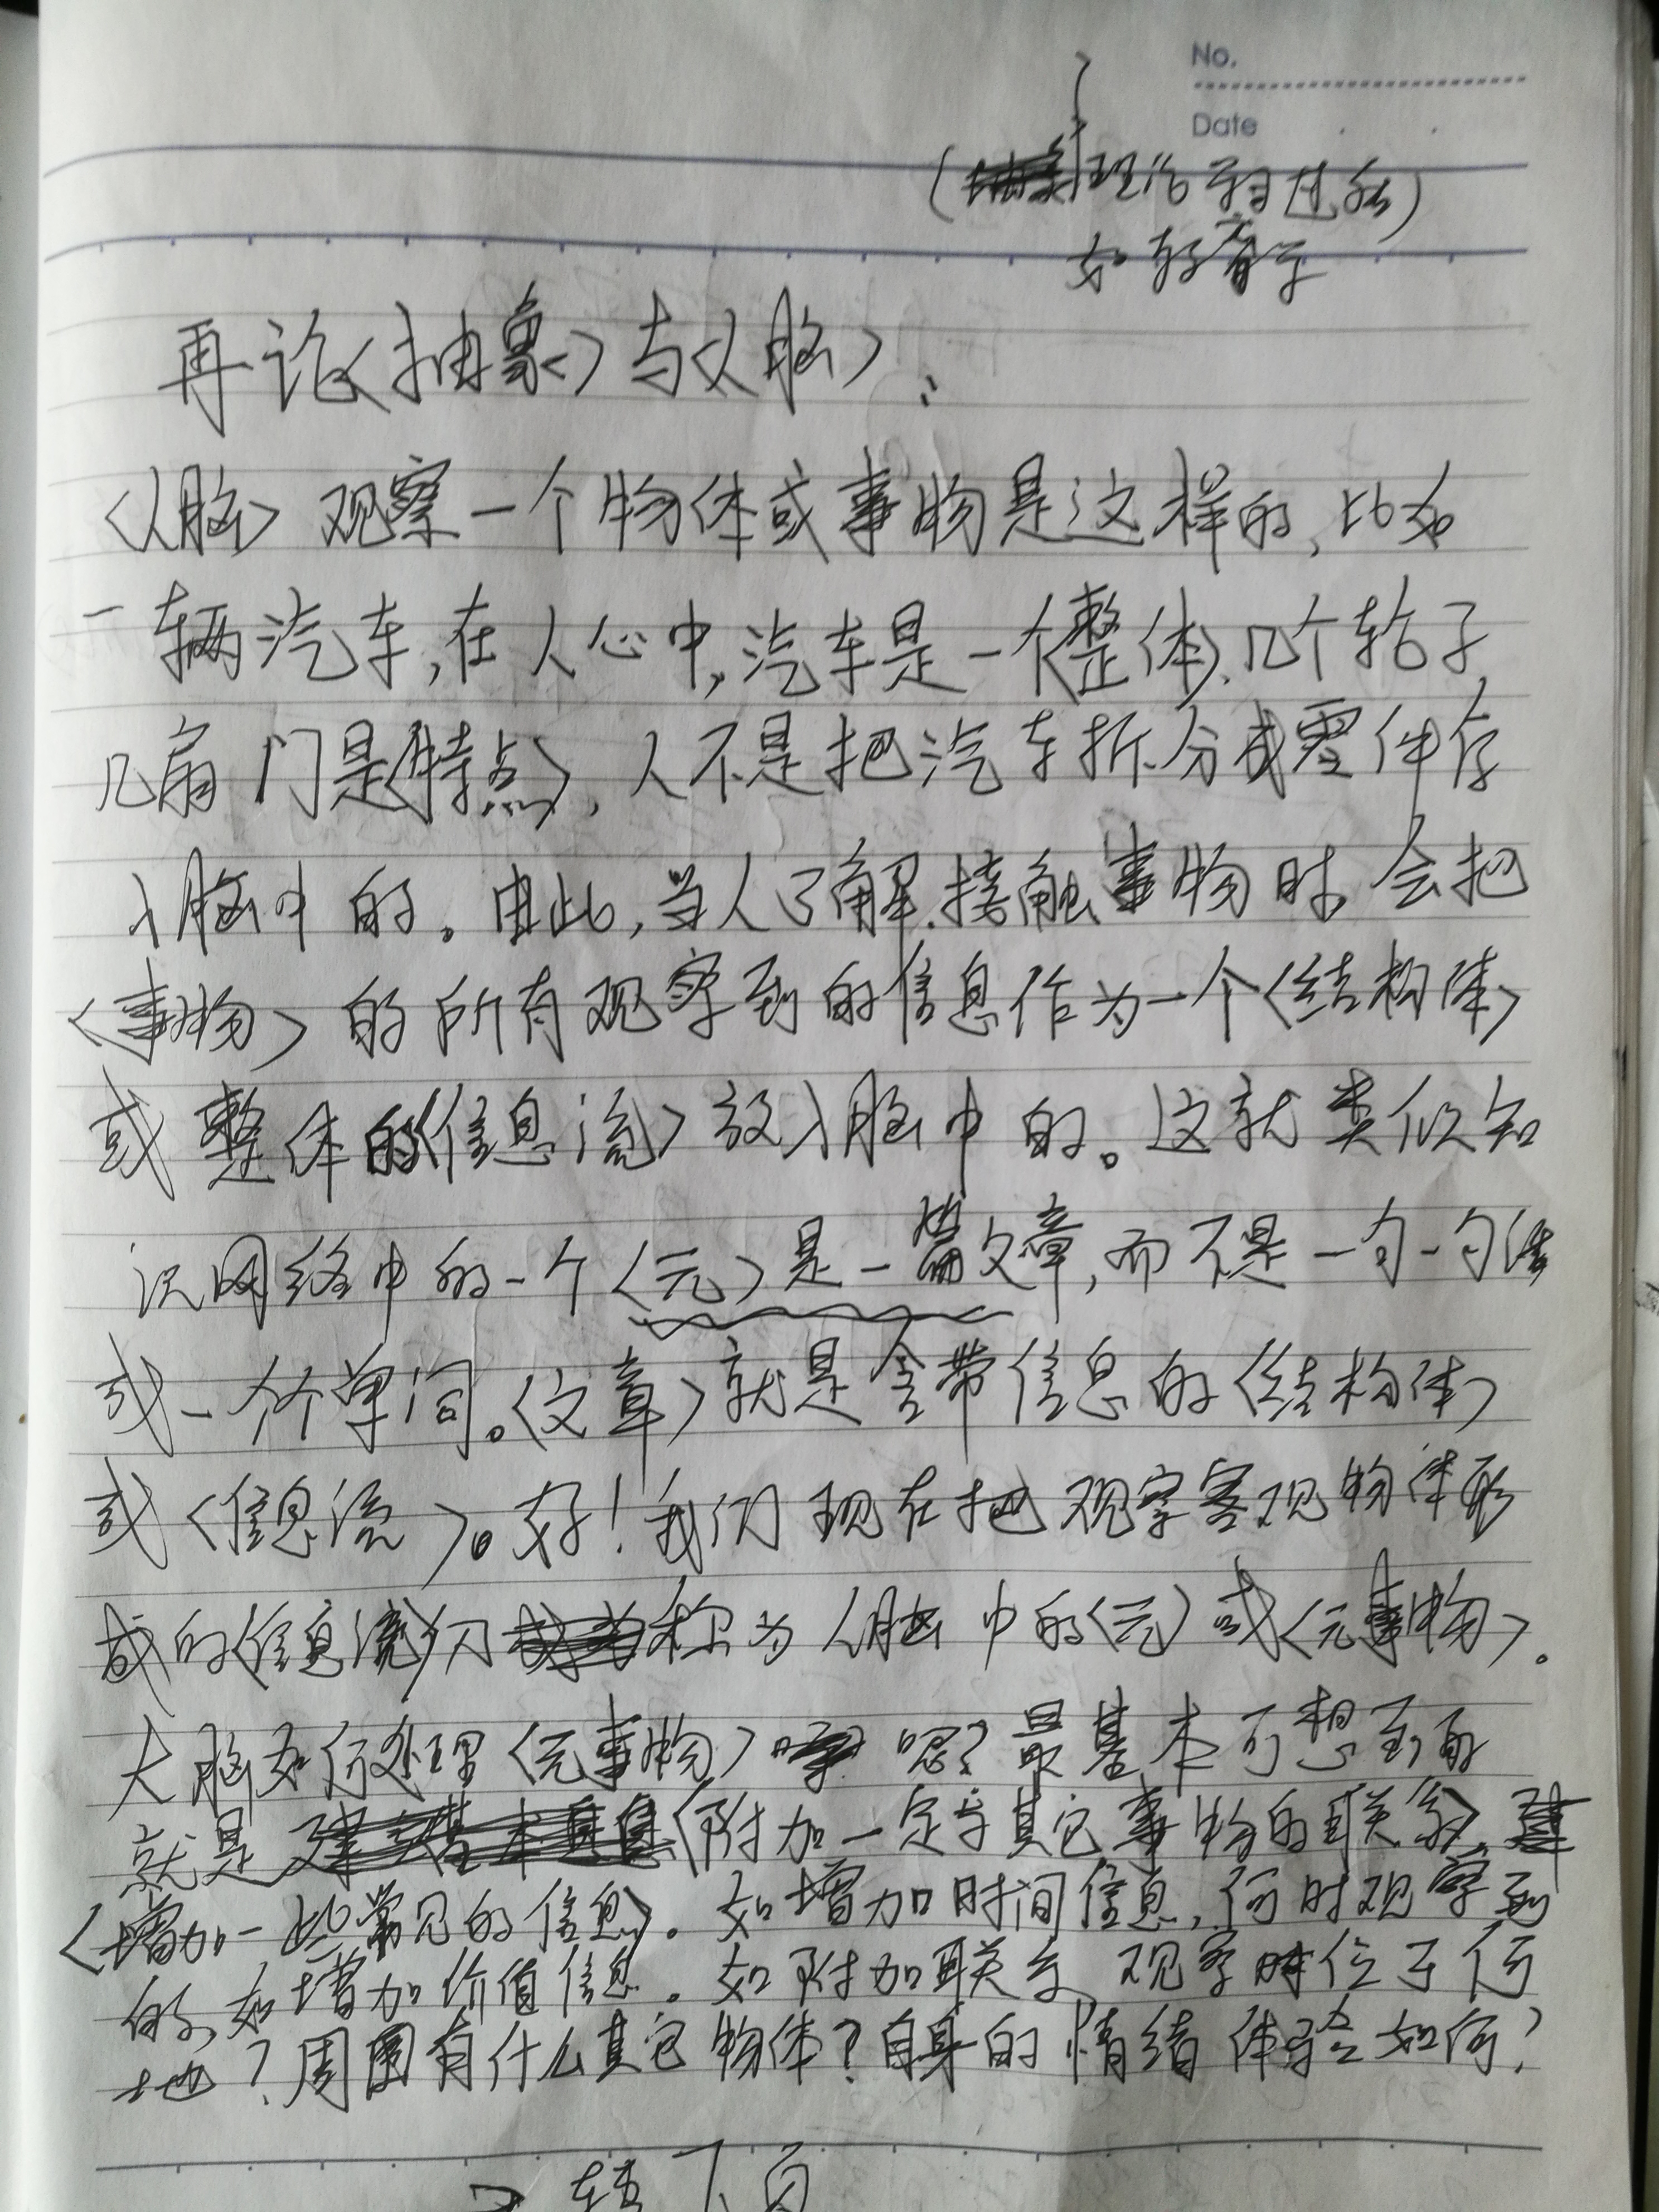 No.
Date
(理论 过程)
如 教育学
再论〈抽象〉与〈人脑〉:
〈人脑〉观察一个物体或事物是这样的,比如
一辆汽车,在人心中,汽车是一个〈整体〉,几个轮子,
几扇门是〈特点〉,人不是把汽车拆分成零件存
入脑中的。由此,当人了解、接触事物时,会把
〈事物〉的所有观察到的信息作为一个〈结构体〉
或整体的〈信息流〉放入脑中的。这就类似知
识网络中的一个〈元〉是一篇文章,而不是一句一句话
或一个个单词。〈文章〉就是含带信息的〈结构体〉
或〈信息流〉。好!我们现在把观察客观物体形
成的〈信息流〉仍称为人脑中的〈元〉或〈元事物〉。
大脑如何处理〈元事物〉呢?最基本可想到的
就是〈附加一定与其它事物的联系〉,
〈增加一些常见的信息〉。如增加时间信息,何时观察到
的,如增加价值信息。如附加联系,观察时位于何
地?周围有什么其它物体?自身的情绪体验如何?
→转下页